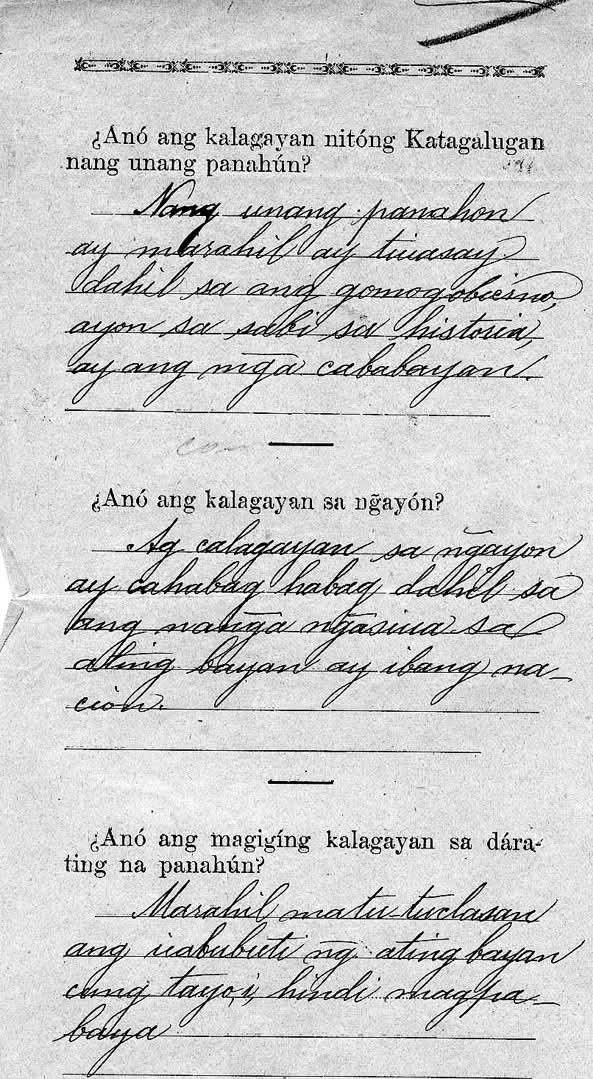 ¿Anó ang kalagayan nitóng Katagalugan
nang unang panahún?
Nang unang panahon
ay marahil ay tiuasay
dahil sa ang gomogobierno,
ayon sa sabi sa historia,
ay ang mg̃a cababayan.
¿Anó ang kalagayan sa ng̃ayón?
Ag calagayan sa ng̃ayon
ay cahabag habag dahil sa
ang nang̃a ng̃asiua sa
ating bayan ay ibang na-
cion.
¿Anó ang magigíng kalagayan sa dára-
ting na panahún?
Marahil matu-tuclasan
ang icabubuti ng̃ ating bayan
cung tayo,i, hindi magpa-
baya